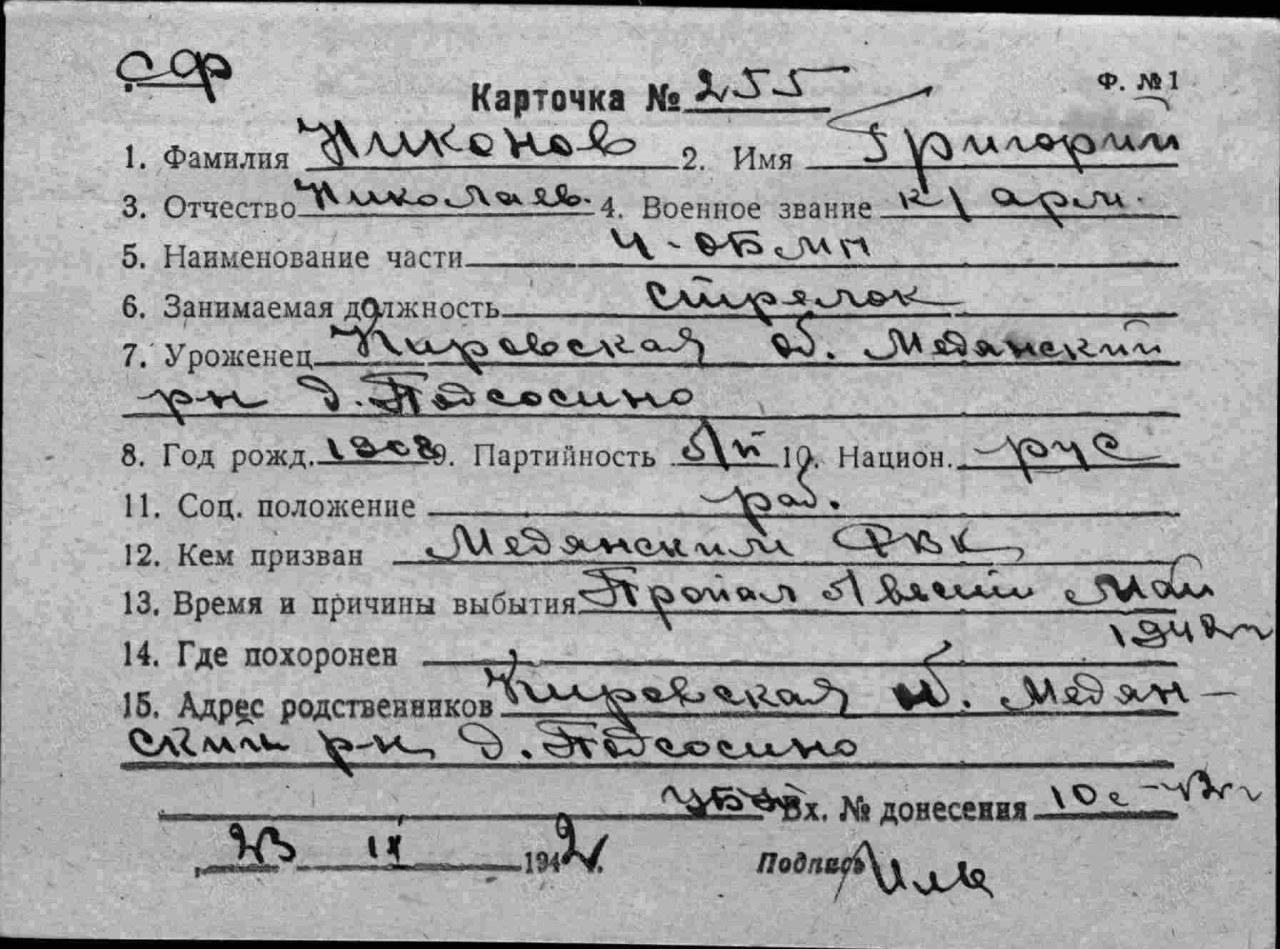 СФ
Карточка № 255 Ф. №1
1. Фамилия Никонов 2. Имя Григорий
3. Отчество Николаев. 4. Военное звание к/арм.
5. Наименование части 4-ОБМП
6. Занимаемая должность стрелок
7. Уроженец Кировская об. Медянский
рн д. Подсосино
8. Год рожд. 1908 9. Партийность б/п 10. Национ. рус
11. Соц. положение раб.
12. Кем призван Медянским РВК
13. Время и причины выбытия Пропал б/вести май
1942 г
14. Где похоронен
15. Адрес родственников Кировская об. Медян-
ский р-н, д. Подсосино
Вх. № донесения 10с-42г
23 1942 г.
Подпись